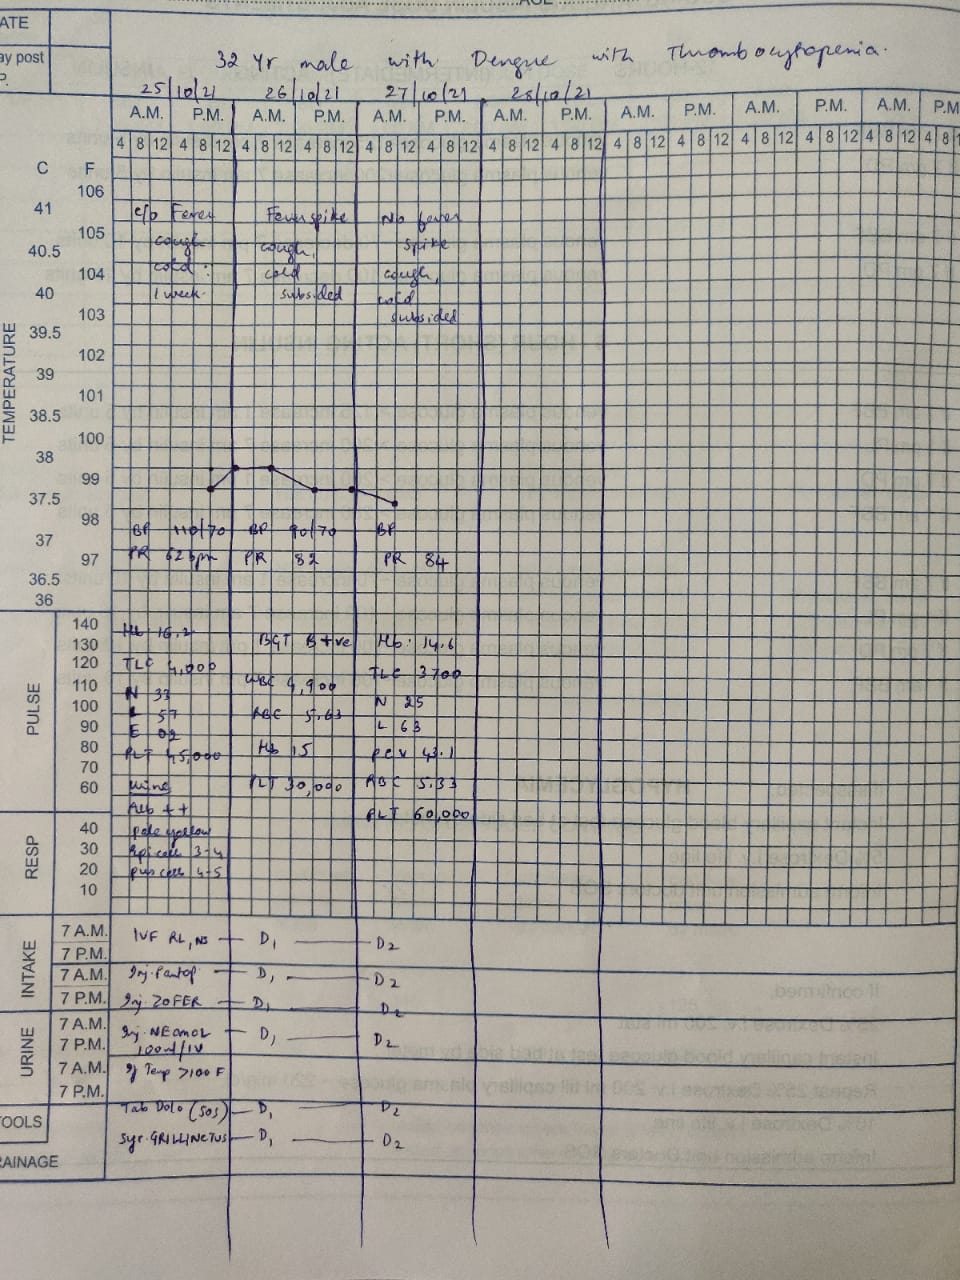 AGE
ATE
ay post
P.
32 Yr male with Dengue with Thrombocytopenia.
25/10/21 26/10/21 27/10/21 28/10/21
A.M. P.M. A.M. P.M. A.M. P.M. A.M. P.M. A.M. P.M. A.M. P.M. A.M. P.M
4 8 12 4 8 12 4 8 12 4 8 12 4 8 12 4 8 12 4 8 12 4 8 12 4 8 12 4 8 12 4 8 12 4 8 12 4 8 12 4 8
C F
TEMPERATURE
106
41
105
40.5
104
40
103
39.5
102
39
101
38.5
100
38
99
37.5
98
37
97
36.5
36
c/o Fever
cough
cold
1 week.
Fever spike
cough,
cold
subsided
No fever
spike
cough,
cold
subsided
BP 110/70 BP 90/70 BP
PR 62bpm PR 82 PR 84
PULSE
140
130
120
110
100
90
80
70
60
Hb 16.2
TLC 4,000
N 33
L 57
E 02
PLT 45,000
Urine
Alb ++
pale yellow
Epi cells 3-4
pus cells 4-5
BGT B+ve
WBC 4,900
RBC 5.63
Hb 15
PLT 30,000
Hb. 14.6
TLC 3700
N 25
L 63
PCV 43.1
RBC 5.33
PLT 60,000
RESP
40
30
20
10
INTAKE
7 A.M.
7 P.M.
7 A.M.
7 P.M.
IVF RL, NS — D1 — D2
Inj. Pantop — D1 — D2
Inj. ZOFER — D1 — D2
URINE
7 A.M.
7 P.M.
7 A.M.
7 P.M.
Inj. NEOMOL — D1 — D2
100ml/IV
If Temp >100 F
TOOLS
Tab Dolo (SOS) — D1 — D2
Syr. GRILLINCTUS — D1 — D2
RAINAGE